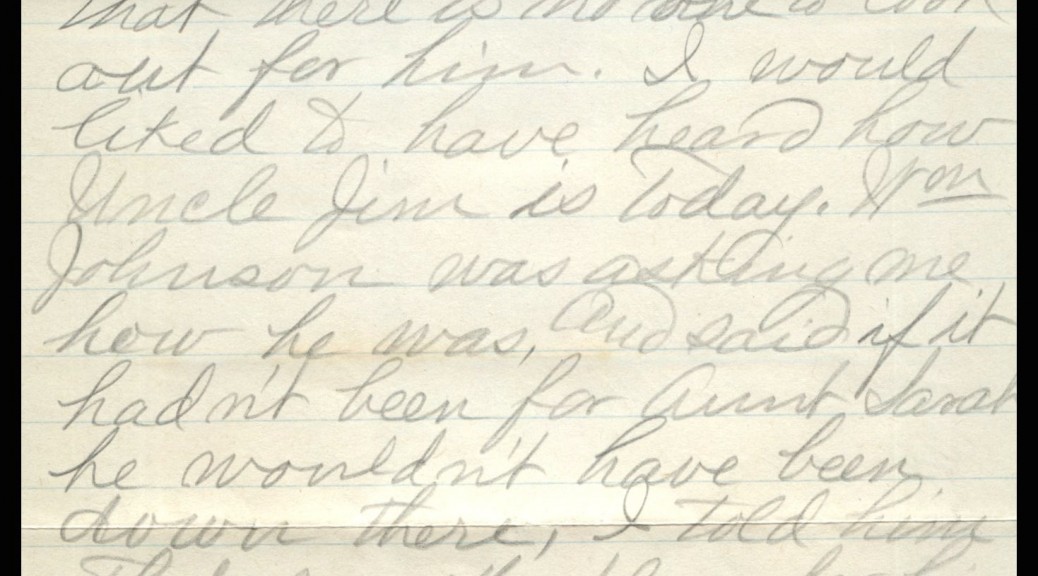 that there is no one to look
out for him. I would
liked to have heard how
Uncle Jim is today. Wm
Johnson was asking me
how he was, and said if it
hadn't been for Aunt Sarah
he wouldn't have been
down there, I told him